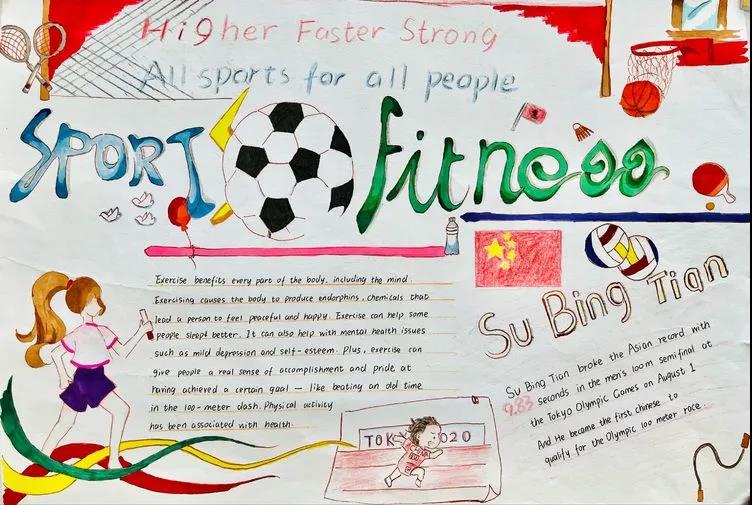 Higher Faster Strong
All sports for all people
SPORT
fitness
Exercise benefits every part of the body, including the mind.
Exercising causes the body to produce endorphins, chemicals that
lead a person to feel peaceful and happy. Exercise can help some
people sleept better. It can also help with mental health issues
such as mild depression and self-esteem. Plus, exercise can
give people a real sense of accomplishment and pride at
having achieved a certain goal — like beating an old time
in the 100-meter dash. Physical activity
has been associated with health.
Su Bing Tian
Su Bing Tian broke the Asian record with
9.83 seconds in the men's 100m semifinal at
the Tokyo Olympic Games on August 1
And He became the first chinese to
qualify for the Olympic 100 meter race
TOK 020